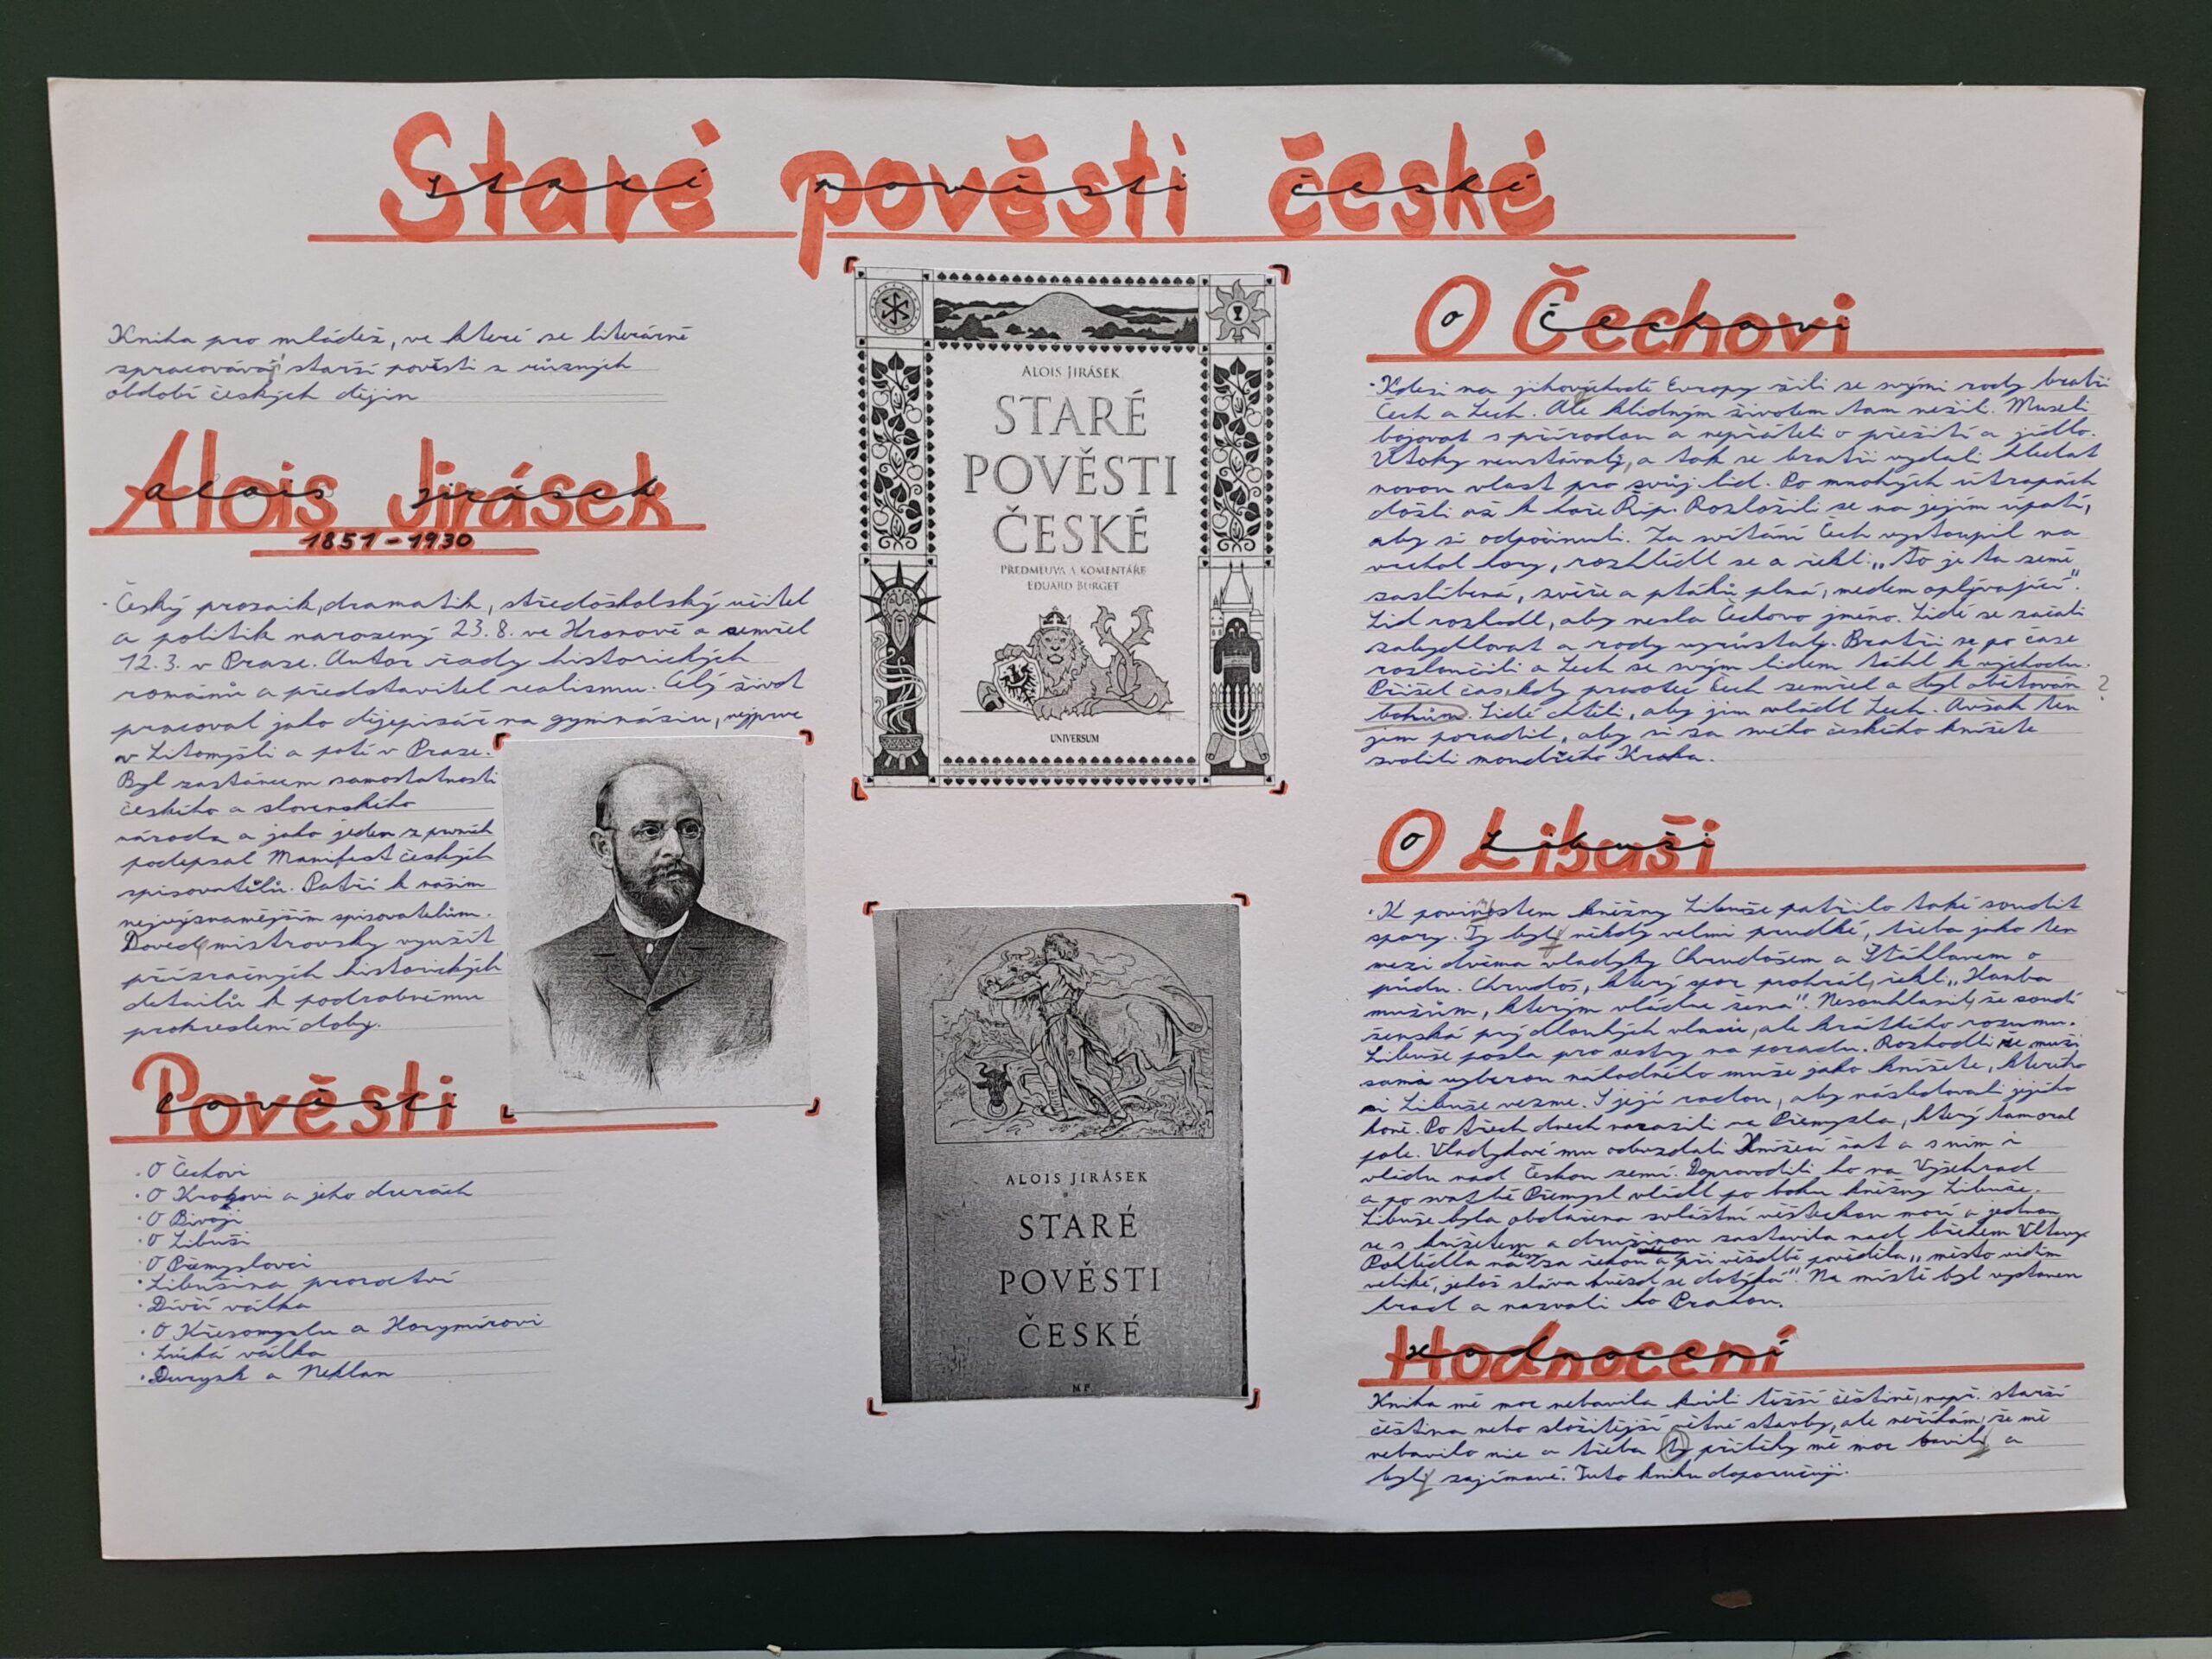 Staré pověsti české
Kniha pro mládež, ve které se literárně
zpracovává starší pověsti z různých
období českých dějin
Alois Jirásek
1851-1930
· Český prozaik, dramatik, středoškolský učitel
a politik narozený 23.8. ve Hronově a zemřel
12.3. v Praze. Autor řady historických
románů a představitel realismu. Celý život
pracoval jako dějepisář na gymnásiu, nejprve
v Litomyšli a poté v Praze.
Byl zastáncem samostatnosti
českého a slovenského
národa a jako jeden z prvních
podepsal Manifest českých
spisovatelů. Patří k našim
nejvýznamějším spisovatelům.
Doved mistrovsky využít
přízračných historických
detailů k podrobnému
prokreslení doby.
Pověsti
· O Čechovi
· O Krokovi a jeho dcerách
· O Bivoji
· O Libuši
· O Přemyslovi
· Libušina proroctví
· Dívčí válka
· O Křesomyslu a Horymírovi
· Lucká válka
· Durynk a Neklan
ALOIS JIRÁSEK
STARÉ
POVĚSTI
ČESKÉ
PŘEDMLUVA A KOMENTÁŘE
EDUARD BURGET
UNIVERSUM
ALOIS JIRÁSEK
STARÉ
POVĚSTI
ČESKÉ
MF
O Čechovi
· Kdesi na jihovýchodě Evropy žili se svými rody bratři
Čech a Lech. Ale klidným životem tam nežil. Museli
bojovat s přírodou a nepřáteli o přežití a jídlo.
Útoky neustávaly, a tak se bratři vydali hledat
novou vlast pro svůj lid. Po mnohých útrapách
došli až k hoře Říp. Rozložili se na jejím úpatí,
aby si odpočinuli. Za svítání Čech vystoupil na
vrchol hory, rozhlédl se a řekl: „To je ta země
zaslíbená, zvěře a ptáků plná, medem oplývající".
Lid rozhodl, aby nesla Čechovo jméno. Lidé se začali
zabydlovat a rody vyrůstaly. Bratři se po čase
rozloučili a Lech se svým lidem táhl k východu.
Přišel čas, kdy praotec Čech zemřel a byl obětován ?
bohům. Lidé chtěli, aby jim vládl Lech. Avšak ten
jim poradil, aby si za svého českého knížete
zvolili moudřeho Kroka.
O Libuši
· K povinostem kněžny Libuše patřilo také soudit
spory. Ty byly někdy velmi prudké, třeba jako ten
mezi dvěma vladyky Chrudošem a Štáhlavem o
půdu. Chrudoš, který spor prohrál, řekl „Hanba
mužům, kterým vládne žena". Nesouhlasil, že soudí
ženská prý dlouhých vlasů, ale krátkého rozumu.
Libuše posla pro sestry na poradu. Rozhodli že muži
sami vyberou náladného muže jako knížete, kterého
si Libuše vezme. S její radou, aby následovali jejího
koně. Po třech dnech narazili na Přemysla, který tam oral
pole. Vladykové mu odevzdali knížecí šat a s ním i
vládu nad Českou zemí. Doprovodili ho na Vyšehrad
a po svatbě Přemysl vládl po boku kněžny Libuše.
Libuše byla obdařena zvláštní věšteckou mocí a jednou
se s knížetem a družinou zastavila nad břehem Vltavy.
Pohlédla na lesy za řekou a při věšdbě pověděla „město vidím
veliké, jehož sláva hvězd se dotýká". Na místě byl vystaven
hrad a nazvali ho Prahou.
Hodnocení
Kniha mě moc nebavila kvůli těžší češtině, např. starší
čeština nebo složitější větné stavby, ale neříkám, že mě
nebavilo nic a třeba ty příběhy mě moc bavily a
byly zajímavé. Tuto knihu doporučuji.